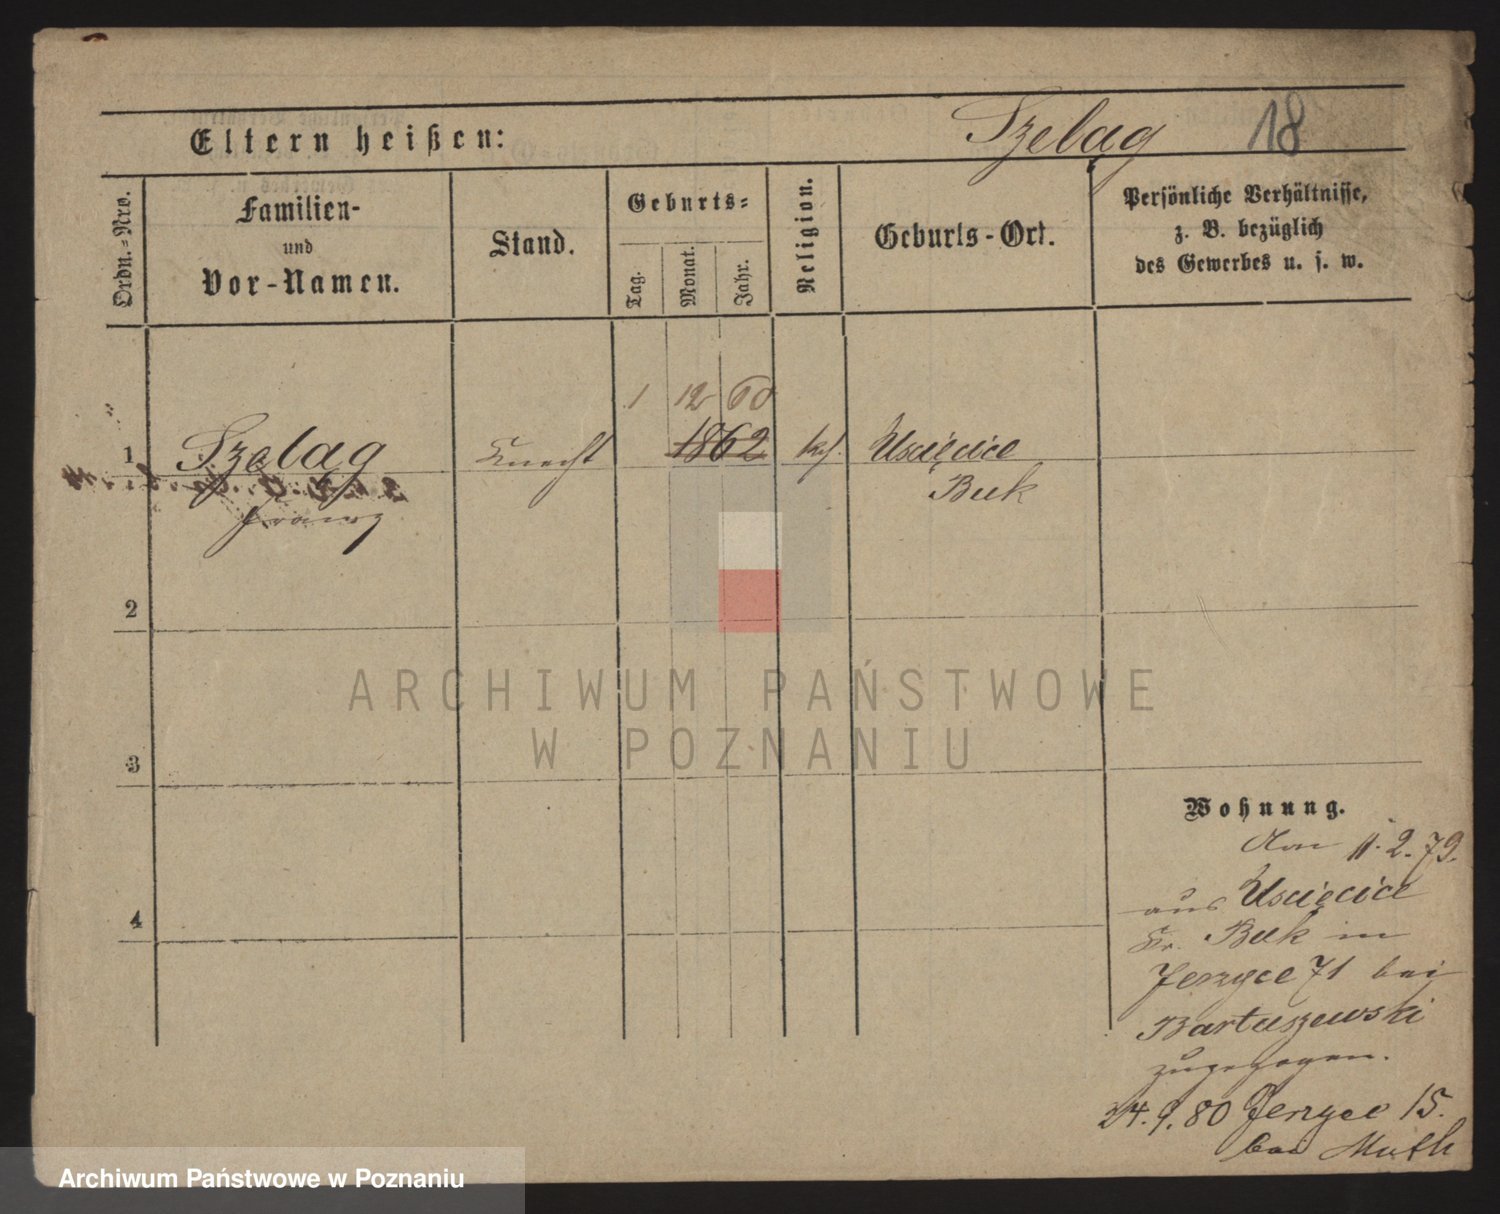 Szeląg 18
Eltern heißen:
Ordn.=Nro.
Familien-
und
Vor-Namen.
Stand.
Geburts=
Tag.
Monat.
Jahr.
Religion.
Geburts-Ort.
Persönliche Verhältnisse,
z. B. bezüglich
des Gewerbes u. s. w.
1 12 60
1 Szeląg Knecht 1862 kt. Uscięcice
Buk
Franz
2
3
4
ARCHIWUM PAŃSTWOWE
W POZNANIU
Wohnung.
Am 11.2.79.
aus Uscięcice
Kr. Buk in
Jerzyce 71 bei
Bartuszewski
zugezogen.
24.9.80 Jerzyce 15.
bei Muth
Archiwum Państwowe w Poznaniu